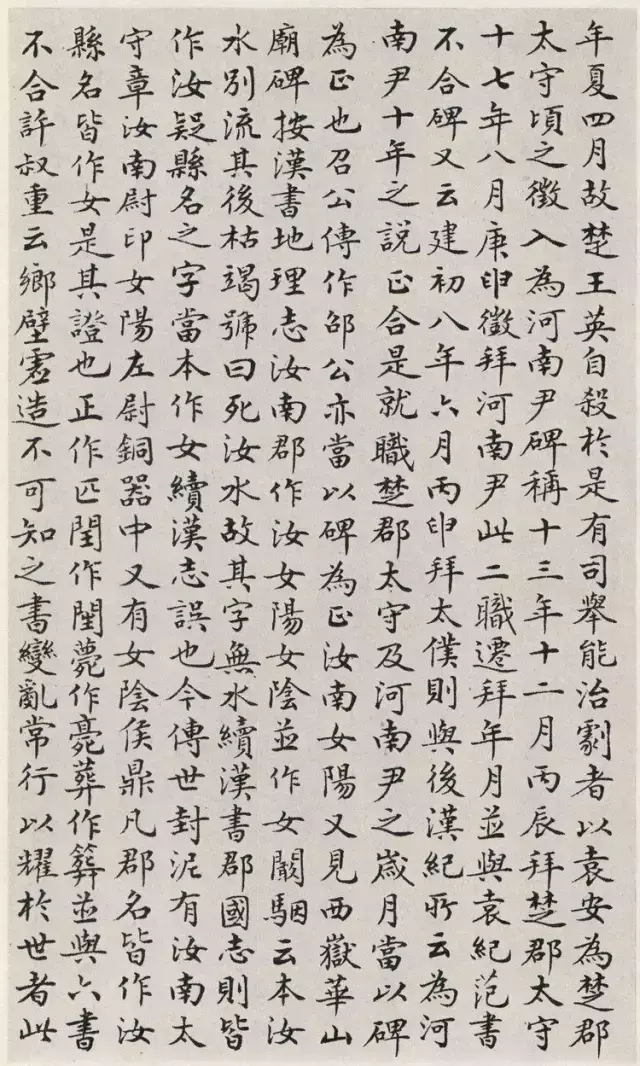 年夏四月故楚王英自殺於是有司舉能治劇者以袁安為楚郡
太守頃之徵入為河南尹碑稱十三年十二月丙辰拜楚郡太守
十七年八月庚申徵拜河南尹此二職遷拜年月並與袁紀范書
不合碑又云建初八年六月丙申拜太僕則與後漢紀所云為河
南尹十年之說正合是就職楚郡太守及河南尹之歲月當以碑
為正也召公傳作邵公亦當以碑為正汝南女陽又見西嶽華山
廟碑按漢書地理志汝南郡作汝女陽女陰並作女闞駰云本汝
水別流其後枯竭號曰死汝水故其字無水續漢書郡國志則皆
作汝疑縣名之字當本作女續漢志誤也今傳世封泥有汝南太
守章汝南尉印女陽左尉銅器中又有女陰侯鼎凡郡名皆作汝
縣名皆作女是其證也正作匹閏作閠薨作薧葬作簳並與六書
不合許叔重云鄉壁虛造不可知之書變亂常行以耀於世者此